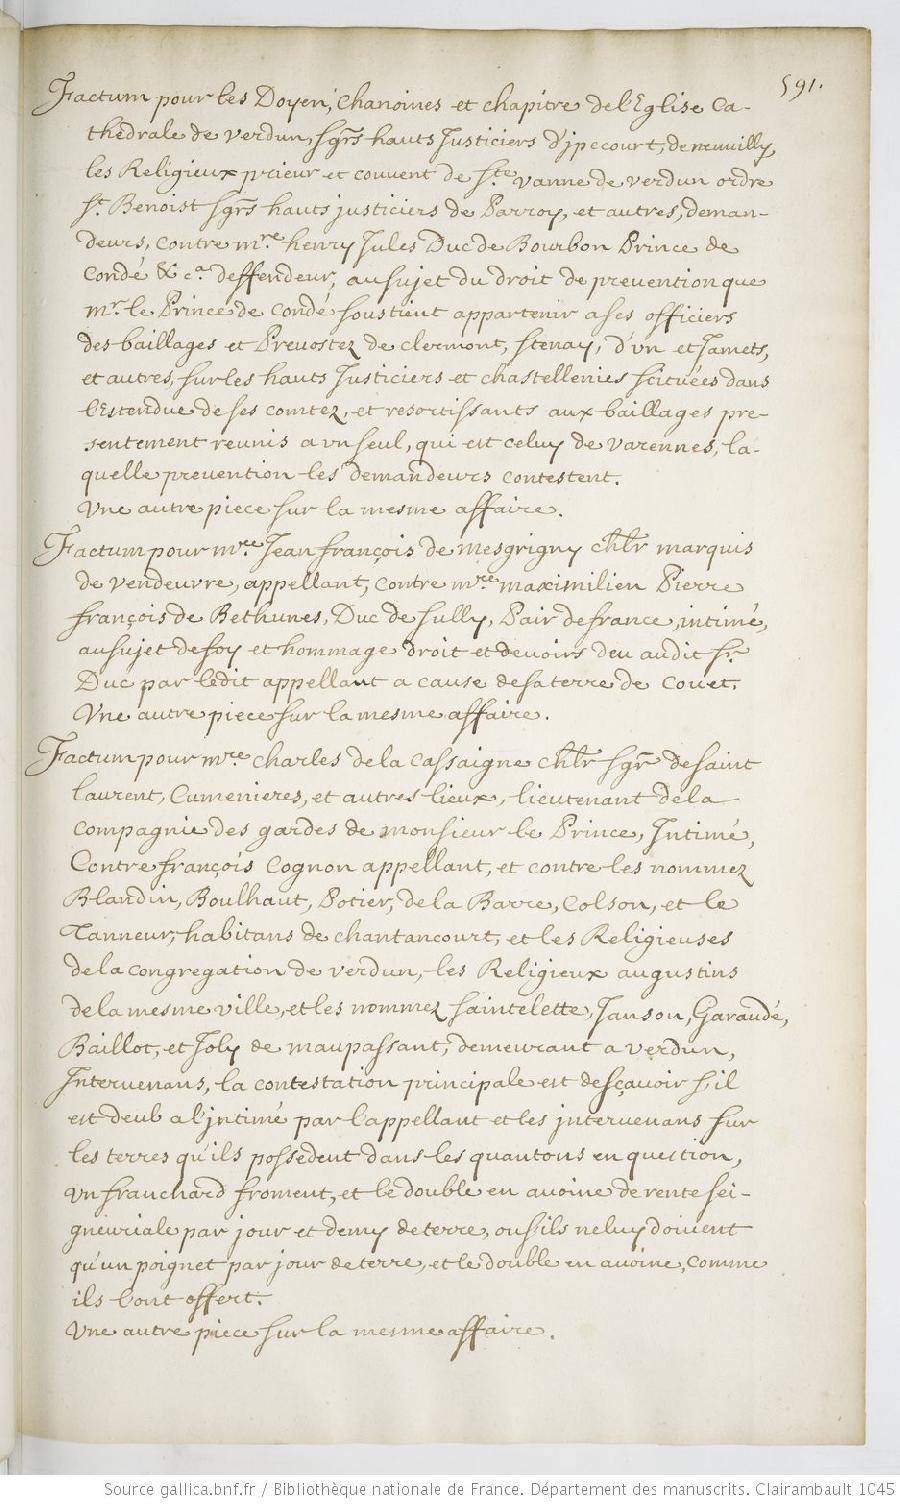 591.
Factum pour les Doyen, Chanoines et chapitre de l'Eglise Ca-
thedrale de verdun, sgrs hauts Justiciers d'jpecourt, de neuuilly,
les Religieux prieur et couvent de Ste. vanne de verdun ordre
St. Benoist sgrs hauts justiciers de Parroy, et autres, deman-
deurs, contre mre. henry Jules Duc de Bourbon Prince de
Condé &ca. deffendeur, au sujet du droit de preuention que
mr. le Prince de Condé soustient appartenir a ses officiers
des baillages et Preuostez de clermont, stenay, d'vn et Jamets,
et autres, sur les hauts Justiciers et chastellenies scituées dans
l'Estendue de ses comtez, et resortissants aux baillages pre-
sentement reunis a vn seul, qui est celuy de varennes, la-
quelle preuention les demandeurs contestent.
Vne autre piece sur la mesme affaire.
Factum pour mre. Jean françois de mesgrigny chlr marquis
de vendeuvre, appellant, contre mre maximilien Pierre
françois de Bethunes, Duc de sully, Pair de france, intimé,
au sujet de foy et hommage droit et deuoirs deu audit sr.
Duc par ledit appellant a cause de sa terre de Couet.
Vne autre piece sur la mesme affaire.
Factum pour mre. charles de la Cassaigne chlr sgr de saint
laurent, Cumenieres, et autres lieux, lieutenant de la
compagnie des gardes de monsieur le Prince, Intimé,
Contre françois Cognon appellant, et contre les nommez
Blandin, Boulhaut, Potier, de la Barre, Colson, et le
Tanneur, habitans de chantancourt, et les Religieuses
de la congregation de verdun, les Religieux augustins
de la mesme ville, et les nommez saintelette, Janson, Garaudé,
Baillot, et Joly de maupassant, demeurant a verdun,
Interuenans, la contestation principale est de sçauoir s'il
est deub a l'jntimé par l'appellant et les jnteruenans sur
les terres qu'ils possedent dans les quantons en question,
vn franchard froment, et le double en auoine de rente sei-
gneuriale par jour et demy de terre, ou s'ils ne luy doiuent
qu'un poignet par jour de terre, et le double en auoine, comme
ils l'ont offert.
Vne autre piece sur la mesme affaire.
Source gallica.bnf.fr / Bibliothèque nationale de France. Département des manuscrits. Clairambault 1045